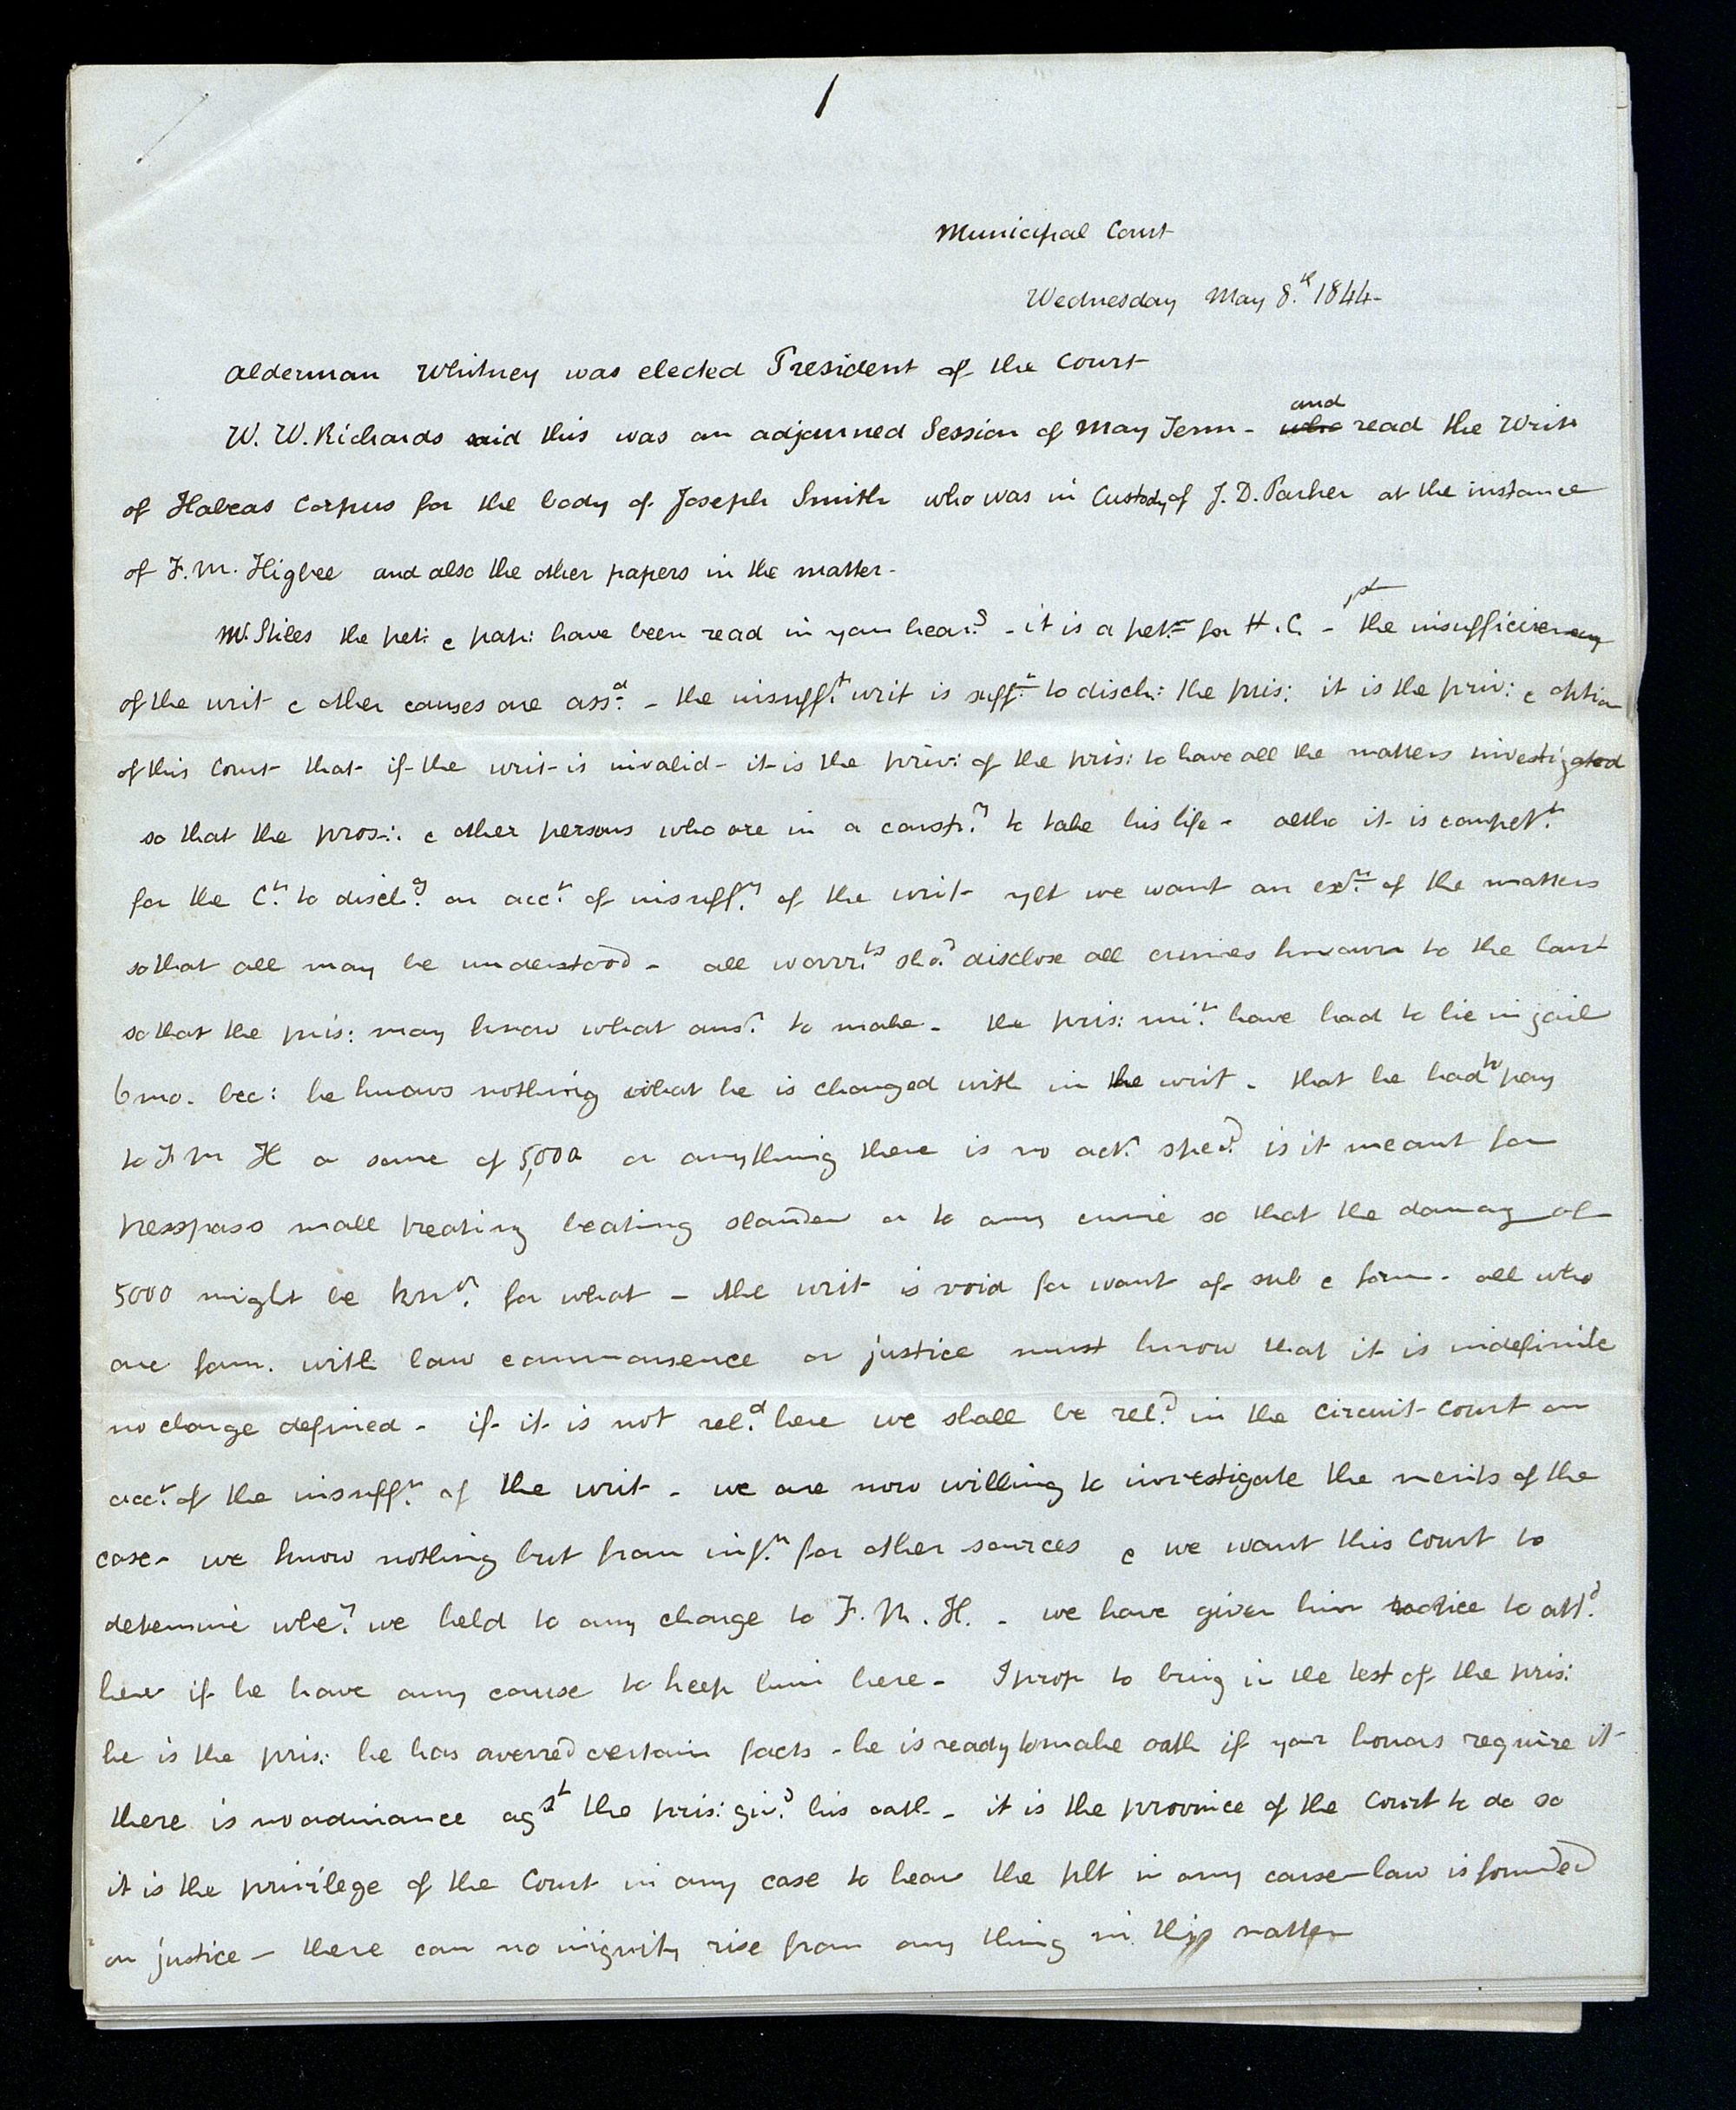 1
Municipal Court
Wednesday May 8.th 1844-
Alderman Whitney was elected President of the Court
W. W. Richards said this was an adjourned Session of May Term - who and read the Writ
of Habeas Corpus for the body of Joseph Smith who was in Custody of J. D. Parker at the instance
of F. M. Higbee and also the other papers in the matter -
Mr. Stiles the pet: & pap: have been read in your hear.g - it is a pet.n for H. C. - the insufficiency
of the writ & other causes are ass.d - the insuff.t writ is suff.t to disch: the pris: it is the priv: & option
of this Court that if the writ is invalid - it is the priv: of the pris: to have all the matters investigated
so that the pros: & other persons who are in a consp.y to take his life - altho it is compet.t
for the C.t to disch.g on acc.t of insuff.y of the writ yet we want an ex.n of the matters
so that all may be understood - all warr.ts sho.d disclose all crimes known to the Court
so that the pris: may know what ans.r to make - the pris: mi.t have had to lie in jail
6 mo. bec: he knows nothing what he is charged with in the writ - that he had to pay
to F M H a some of 5,000 or anything there is no act.n spe.d is it meant for
tresspass mall treating beating slander or to any crime so that the damag of
5000 might be kn.n for what - the writ is void for want of sub & form - all who
are fam. with law commonsence or justice must know that it is indefinite
no charge defined - if it is not rel.d here we shall be rel.d in the circuit court on
acc.t of the insuff.y of the writ - we are now willing to investigate the merits of the
case - we know nothing but from inf.n for other sources & we want this Court to
determine whe.r we held to any charge to F. M. H. - we have given him notice to att.d
here if he have any cause to keep him here - I prop to bring in the test of the pris:
he is the pris: he has averred certain facts - he is ready to make oath if your honors require it
there is no ordinance agst the pris: giv.g his oath - it is the province of the Court to do so
it is the privilege of the Court in any case to hear the plt in any cause - law is founded
on justice - there can no iniquity rise from any thing in this matter